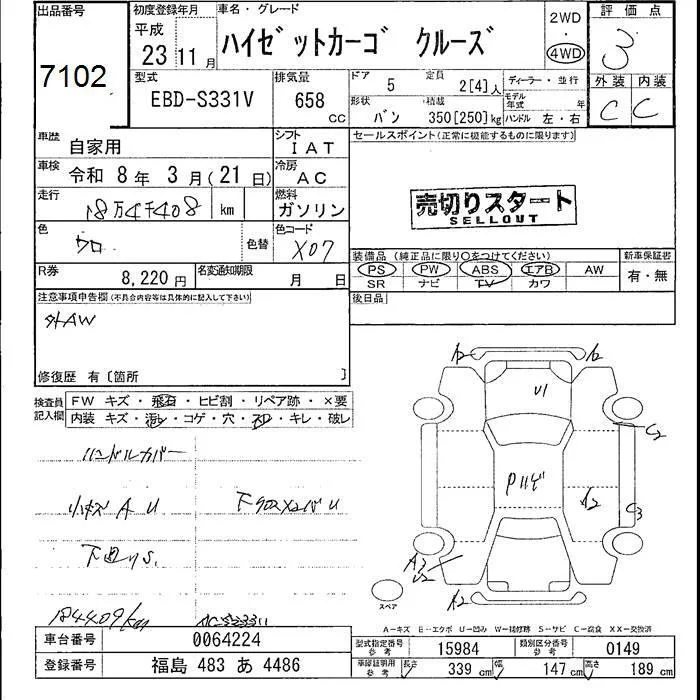 出品番号
7102
初度登録年月
平成
23 11 月
車名・グレード
ハイゼットカーゴ クルーズ
2WD
・
4WD
評価点
3
外装 内装
C C
型式
EBD-S331V
排気量
658
CC
ドア 5
定員 2[4]人
形状 バン
積載 350[250]kg
ディーラー・並行
モデル年式 年
ハンドル 左・右
車歴
自家用
シフト
IAT
セールスポイント(正常に機能するものに限ります)
車検
令和 8 年 3 月(21 日)
冷房
AC
走行
18万4千408 km
燃料
ガソリン
売切りスタート
SELLOUT
色
クロ
色替
色コード
X07
装備品(純正品に限り○をつけてください)
新車保証書
PS PW ABS エアB AW
SR ナビ TV カワ
有・無
R券
8,220 円
名変通知期限
月 日
後日品
注意事項申告欄(不具合内容等は具体的に記入して下さい)
外AW
修復歴 有〔箇所 〕
検査員記入欄
FW キズ・飛石・ヒビ割・リペア跡・×要
内装 キズ・汚レ・コゲ・穴・スレ・キレ・破レ
ハンドルカバー
小キズ A U
下廻りS
184409km
A2
A2
U1
C2
Pハゲ
A2
C3
A3
U2
A2
スペア
A−キズ E−エクボ U−凹み W−補修跡 S−サビ C−腐食 XX−交換済
車台番号
0064224
登録番号
福島 483 あ 4486
型式指定番号
参考
15984
類別区分番号
参考
0149
車庫証明用
参考
長さ 339 cm
幅 147 cm
高さ 189 cm